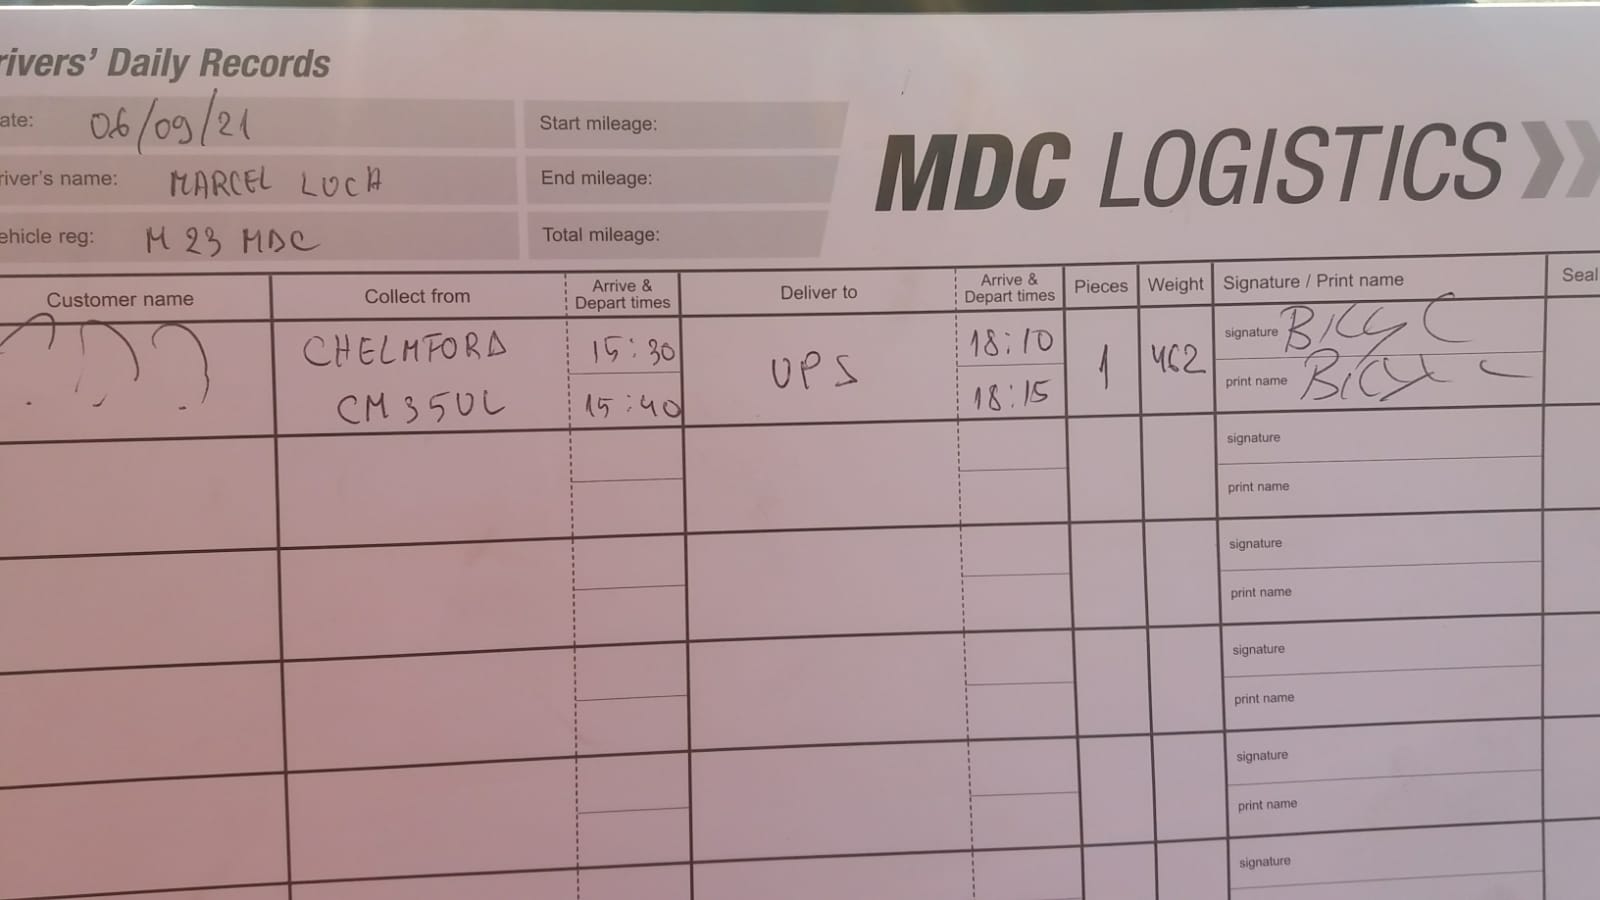 rivers' Daily Records
ate: 06/09/21
Start mileage:
MDC LOGISTICS
river's name: MARCEL LUCA
End mileage:
ehicle reg: M 23 MDC
Total mileage:
Customer name
Collect from
Arrive &
Depart times
Deliver to
Arrive &
Depart times
Pieces
Weight
Signature / Print name
Seal
???
CHELMFORD
CM35UL
15:30
15:40
UPS
18:10
18:15
1
462
signature
print name
signature
print name
signature
print name
signature
print name
signature
print name
signature